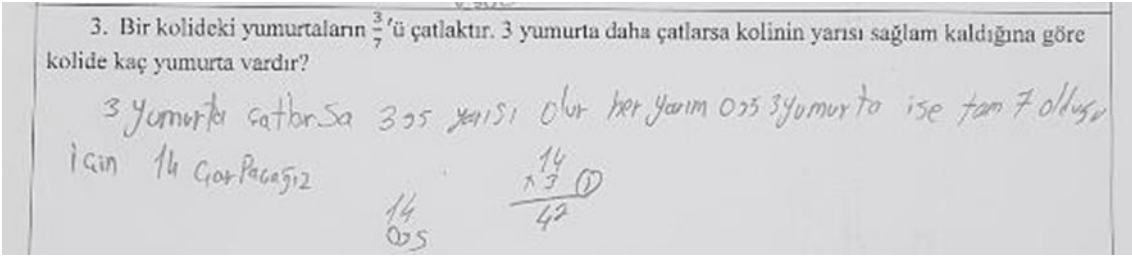 3. Bir kolideki yumurtaların 3/7'ü çatlaktır. 3 yumurta daha çatlarsa kolinin yarısı sağlam kaldığına göre
kolide kaç yumurta vardır?
3 yumurta çatlarsa 3,5 yarısı olur her yarım 0,5 3 yumurta ise tam 7 olduğu
için 14 çarpacağız
14
x 3 1
42
14
0,5